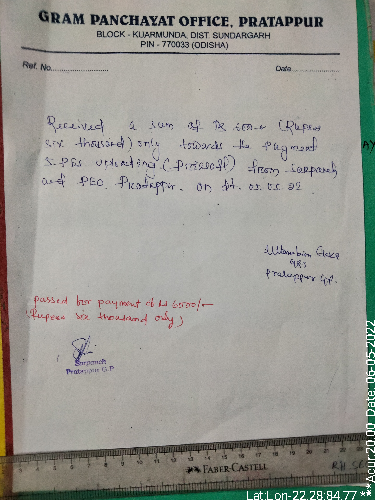 GRAM PANCHAYAT OFFICE, PRATAPPUR
BLOCK - KUARMUNDA, DIST. SUNDARGARH
PIN - 770033 (ODISHA)
Ref. No.
Date
Received a sum of Rs 6000 (Rupees
six thousand) only towards the payment
from sarpanch
and PEO, Pratappur. on dt.
GRS
Pratappur GP.
passed for payment of Rs 6000/-
(Rupees six thousand only)
Sarpanch
Pratappur G.P
FABER-CASTELL
Lat:Lon-22.28:84.77 ***Acur 20.00 Date: 06-05-2022